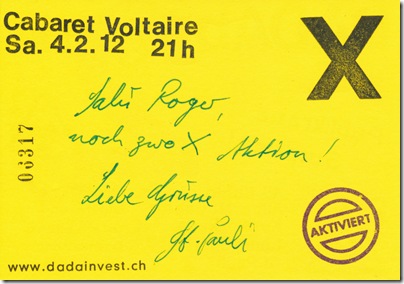 Cabaret Voltaire
Sa. 4.2.12 21h
X
Salü Roger,
noch zwo X Aktion!
Liebe Grüsse
St. Pauli
06317
AKTIVIERT
www.dadainvest.ch